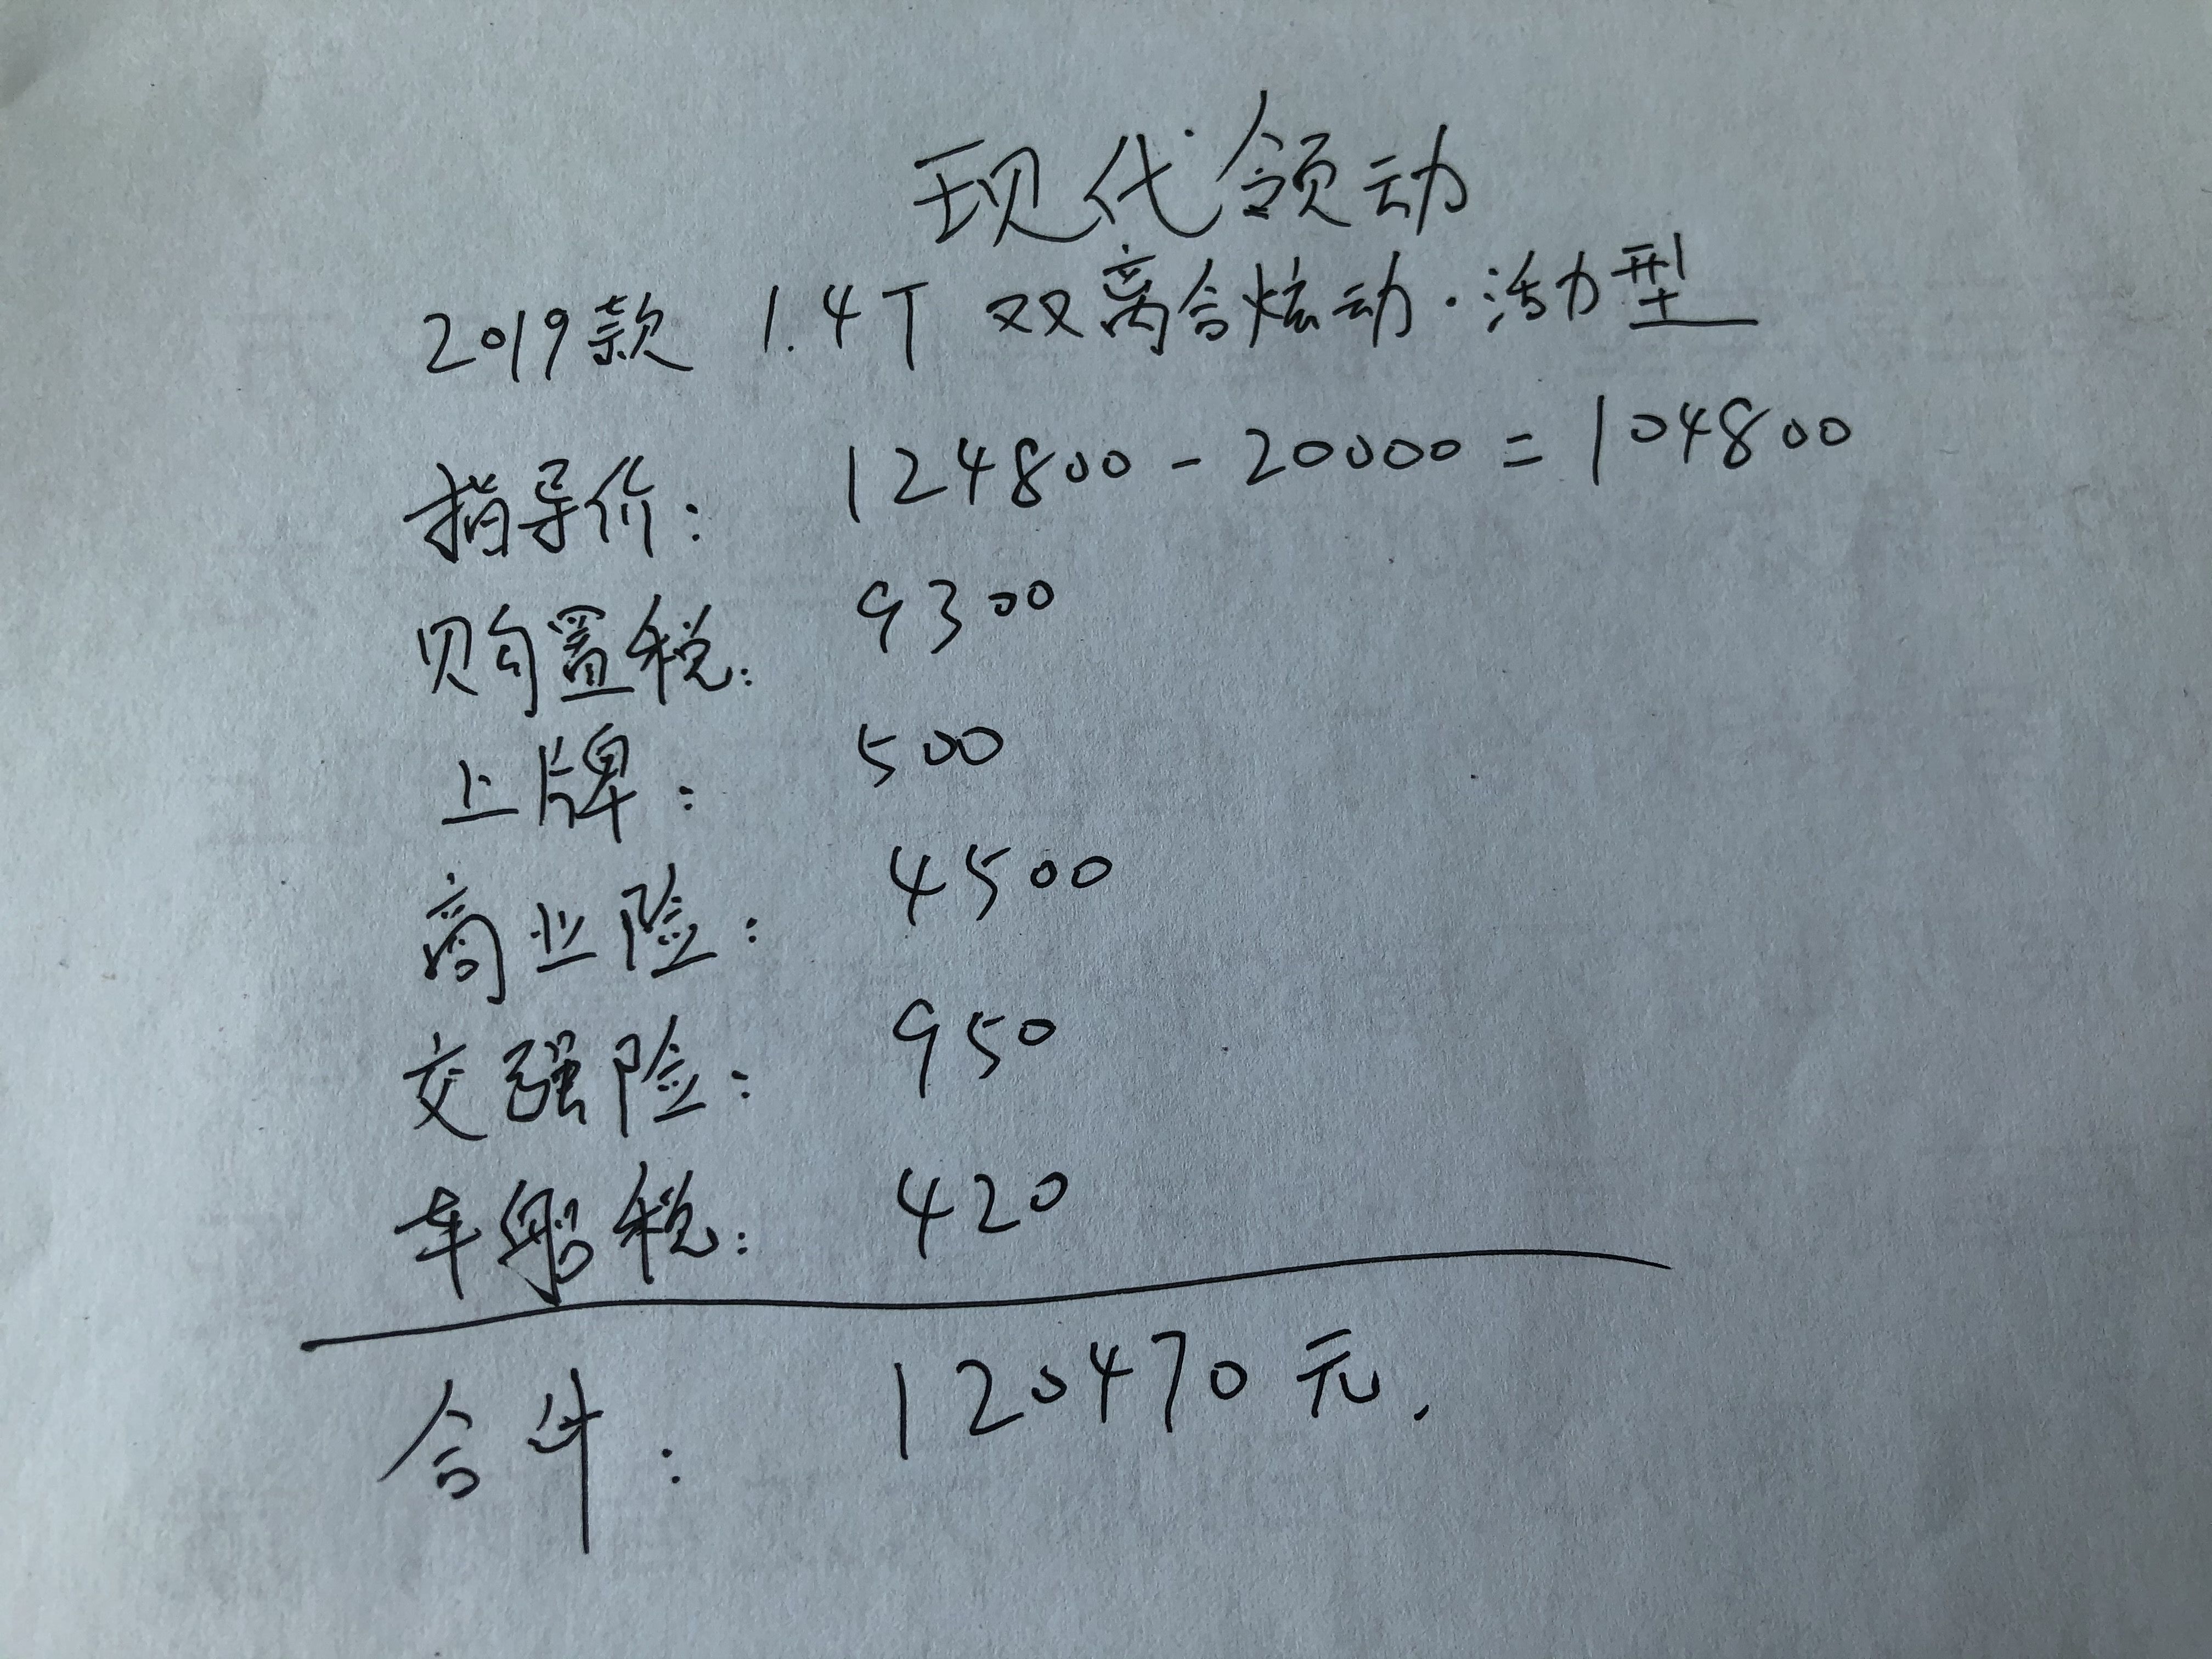 现代领动
2019款 1.4T 双离合炫动·活力型
指导价: 124800-20000=104800
购置税: 9300
上牌: 500
商业险: 4500
交强险: 950
车船税: 420
合计: 120470元.